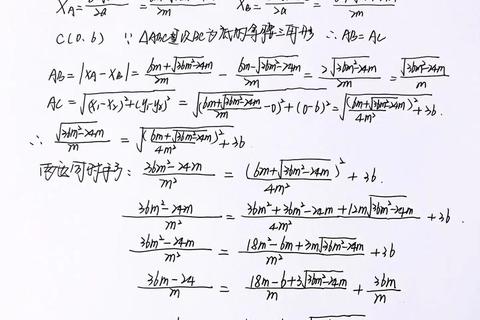 XA = 2a = 2m XB = 2a = 2m
C(0.6) ∵ △ABC是以BC为底的等腰三角形 ∴ AB=AC
AB=|XA-XB|= (6m+√(36m²-24m))/2m - (6m-√(36m²-24m))/2m = 2√(36m²-24m)/2m = √(36m²-24m)/m
AC=√((x₁-x₂)²+(y₁-y₂)²) = √(((6m+√(36m²-24m))/2m-0)²+(0-6)²) = √((6m+√(36m²-24m))²/4m²+36)
∴ √(36m²-24m)/m = √((6m+√(36m²-24m))²/4m²+36)
两边同时平方: (36m²-24m)/m² = (6m+√(36m²-24m))²/4m² + 36.
(36m²-24m)/m² = (36m²+36m²-24m+12m√(36m²-24m))/4m² + 36.
(36m²-24m)/m² = (18m²-6m+3m√(36m²-24m))/m² + 36
(36m-24)/m = (18m-6+3√(36m²-24m))/m + 36m/m